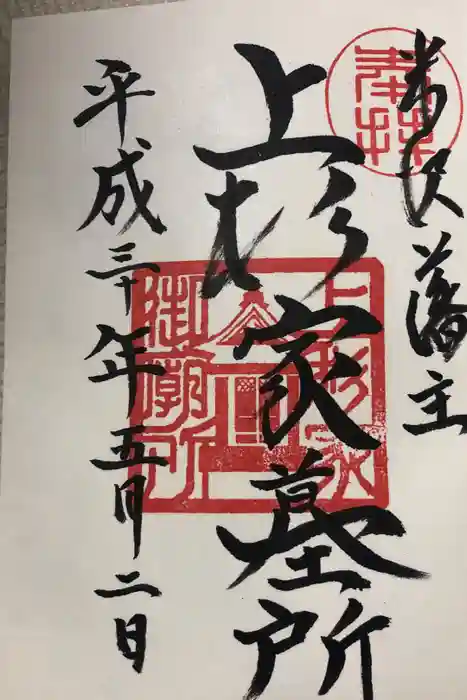 奉拝
米沢藩主
上杉家墓所
上杉家
御廟所
平成三十年五月二日